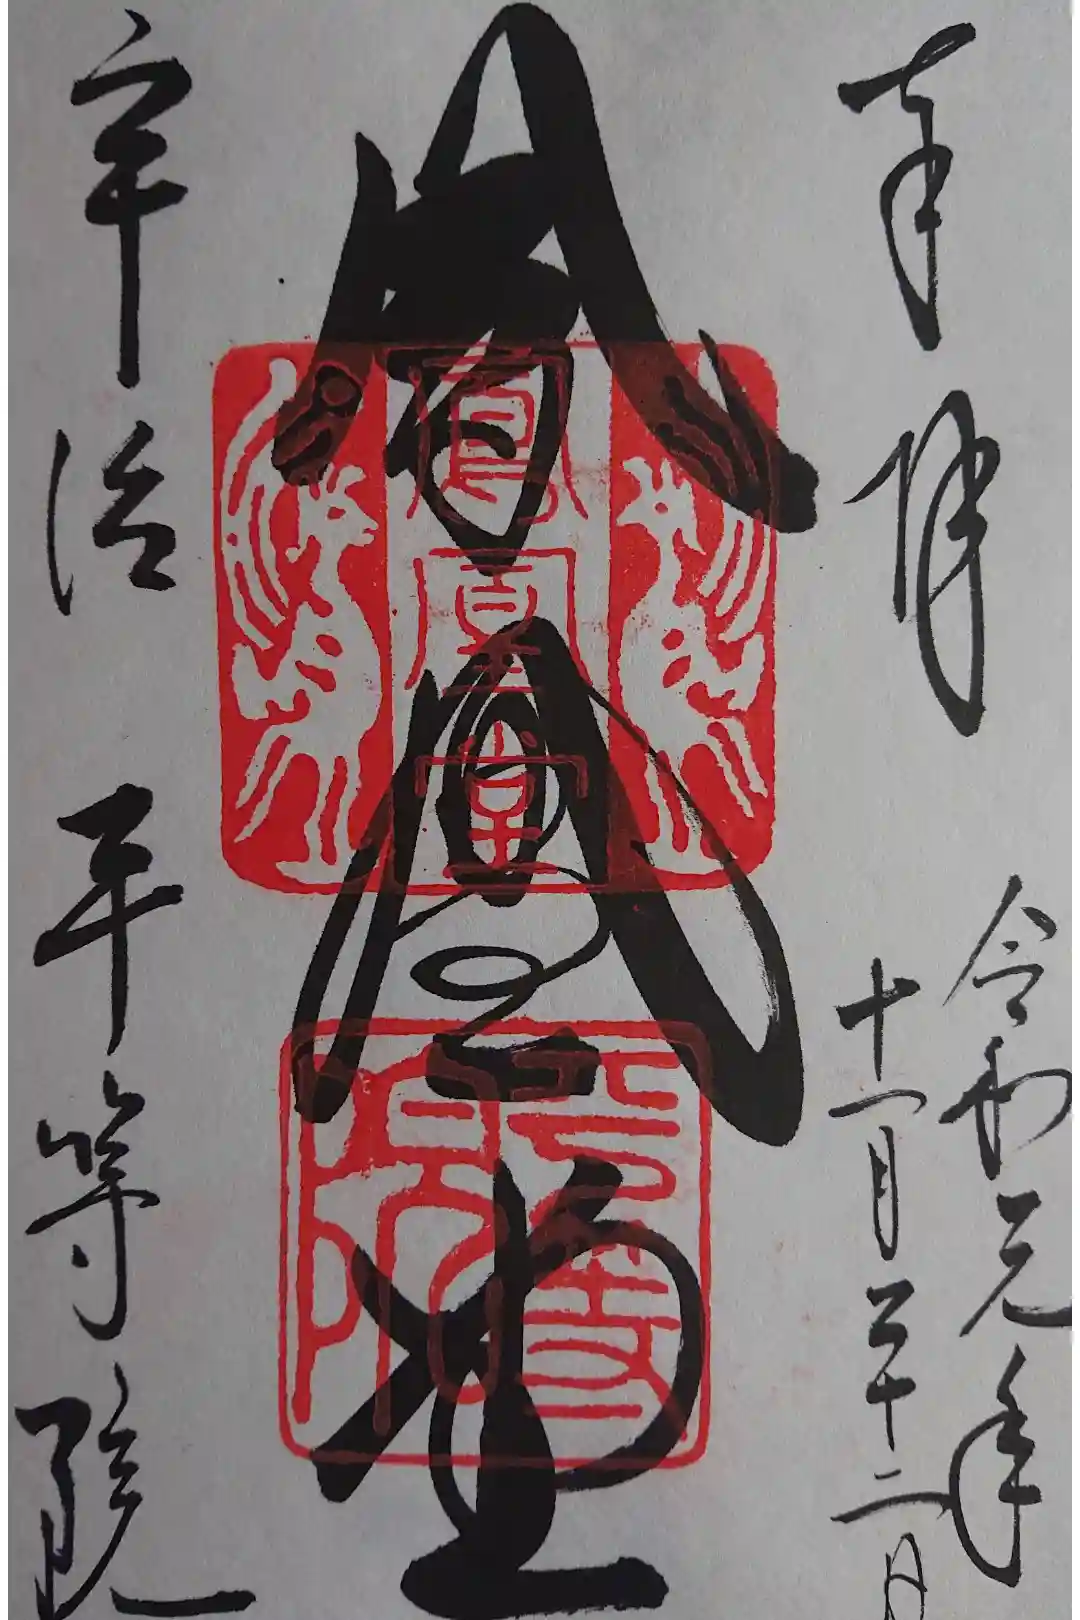 奉拝
令和元年
十一月二十二日
鳳凰堂
鳳凰堂
平等院
宇治 平等院